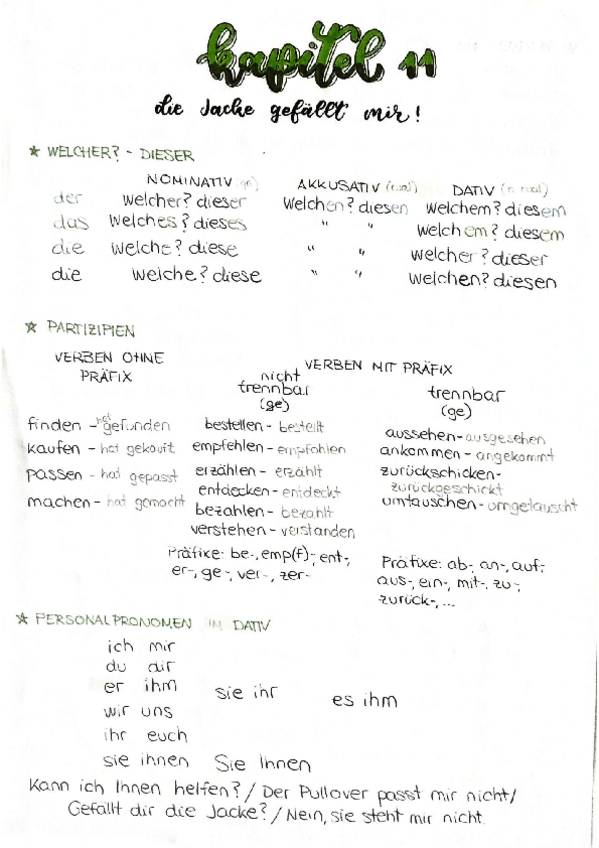 kapitel 11
die Jacke gefällt mir!
★ WELCHER? - DIESER
NOMINATIV AKKUSATIV DATIV
der welcher? dieser welchen? diesen welchem? diesem
das welches? dieses " " welchem? diesem
die welche? diese " " welcher? dieser
die welche? diese " " welchen? diesen
★ PARTIZIPIEN
VERBEN OHNE PRÄFIX
VERBEN MIT PRÄFIX
nicht trennbar (ge)
trennbar (ge)
finden - hat gefunden
kaufen - hat gekauft
passen - hat gepasst
machen - hat gemacht
bestellen - bestellt
empfehlen - empfohlen
erzählen - erzählt
entdecken - entdeckt
bezahlen - bezahlt
verstehen - verstanden
Präfixe: be-, emp(f)-, ent-,
er-, ge-, ver-, zer-
aussehen - ausgesehen
ankommen - angekommt
zurückschicken-
zurückgeschickt
umtauschen - umgetauscht
Präfixe: ab-, an-, auf-,
aus-, ein-, mit-, zu-,
zurück-, ...
★ PERSONALPRONOMEN IM DATIV
ich mir
du dir
er ihm sie ihr es ihm
wir uns
ihr euch
sie ihnen Sie Ihnen
Kann ich Ihnen helfen? / Der Pullover passt mir nicht /
Gefällt dir die Jacke? / Nein, sie steht mir nicht.